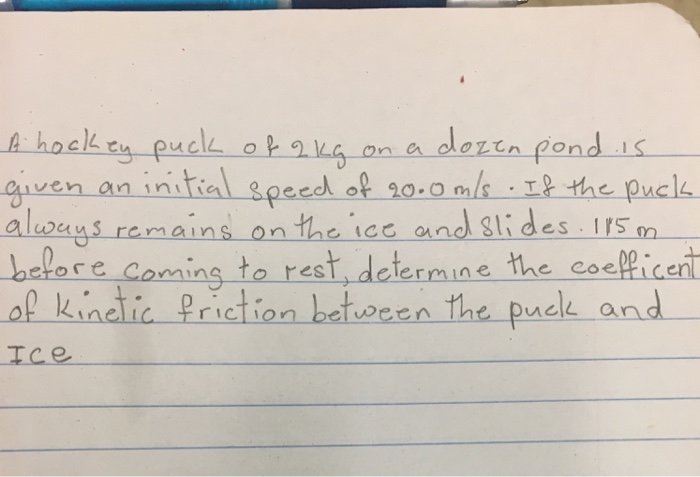 A hockey puck of 2kg on a dozen pond is
given an initial speed of 20.0 m/s. If the puck
always remains on the ice and slides. 115 m
before coming to rest, determine the coefficent
of kinetic friction between the puck and
Ice